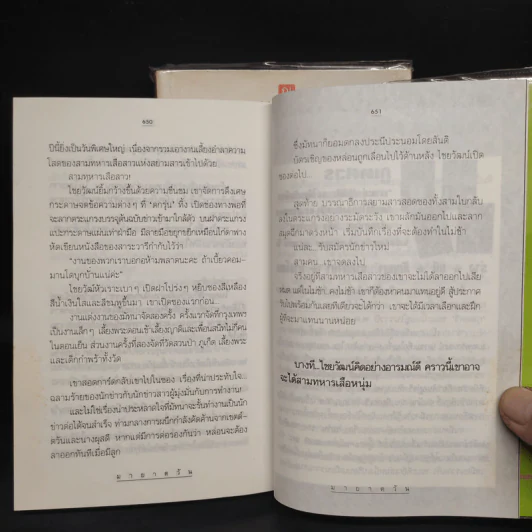 650
ปีนี้ยิ่งเป็นวันพิเศษใหญ่ เนื่องจากรวมเอางานเลี้ยงอำลาความ
โสดของสามทหารเสือสาวแห่งสยามสารเข้าไปด้วย
สามทหารเสือสาว!
ไชยวัฒน์ยิ้มกว้างขึ้นด้วยความชื่นชม เขาจัดการดึงเศษ
กระดาษจดข้อความต่างๆ ที่
จะลากตระแกรงบรรจุต้นฉบับข่าวเข้ามาใกล้ตัว บนฝาตระแกรง
แปะกระดาษแผ่นเท่าฝ่ามือ มีลายมือขยุกขยิกเหมือนไก่ตกฟาง
หัดเขียนหนังสือของสาระวารีกำกับไว้ว่า
"งานของพวกเราบอกอห้ามพลาดนะคะ ถ้าเบี้ยวคอม-
มานโดบุกบ้านแน่ค่ะ"
ไชยวัฒน์หัวเราะเบาๆ เปิดฝาโปร่งๆ หยิบซองสีเหลือง
สีน้ำเงินใสและสีชมพูขึ้นมา เขาเปิดซองแรกก่อน...
งานแต่งงานของมัทนาจัดสองครั้ง ครั้งแรกจัดที่กรุงเทพฯ
เป็นงานเล็กๆ เลี้ยงพระตอนเช้าเลี้ยงญาติและเพื่อนสนิทไม่กี่คน
ในตอนเย็น ส่วนงานครั้งที่สองจัดที่วัดสวนป่า ภูเก็ต เลี้ยงพระ
และเด็กกำพร้าทั้งวัด
เขาสอดการ์ดกลับเข้าไปในซอง เรื่องที่น่าประทับใจ...
ฉลามร้ายของนักข่าวกับนักข่าวสาวผู้มุ่งมั่นกับการทำงาน!
และไม่ใช่เรื่องน่าประหลาดใจที่มัทนาจะรั้นทำงานเป็นนัก
ข่าวต่อได้จนสำเร็จ ท่ามกลางการผนึกกำลังคัดค้านจากเขตต์-
ตวันและนางผุสดี หากแต่มีการต่อรองกันว่า หล่อนจะต้อง
ลาออกทันทีเมื่อมีลูก
มายาตวัน
651
ซึ่งมัทนาก็ยอมตกลงประนีประนอมโดยสันติ
บัตรเชิญของหล่อนถูกเลื่อนไปไว้ด้านหลัง ไชยวัฒน์เปิด
ซองต่อไป...
สุดท้าย บรรณาธิการสยามสารสอดซองทั้งสามในกลับ
ลงในตระแกรงอย่างระมัดระวัง เขาผลักมันออกไปและลาก
สมุดฉีกมาตรงหน้า เริ่มบันทึกเรื่องที่จะต้องทำในไม่ช้า
แน่ละ...รับสมัครนักข่าวใหม่
สามคน เขาจดลงไป
จริงอยู่ที่สามทหารเสือสาวของเขาจะไม่ได้ลาออกไปเสีย
แต่ในไม่ช้า คงไม่ช้า เขาก็ต้องหาคนมาแทนอยู่ดี สู้ประกาศ
รับไปพร้อมกันเลยทีเดียวจะได้กว่า เขาจะได้มีเวลาเลือกและฝึก
ผู้ที่จะมาแทนนานหน่อย
บางที...ไชยวัฒน์คิดอย่างอารมณ์ดี คราวนี้เขาอาจ
จะได้สามทหารเสือหนุ่ม
มายาตวัน